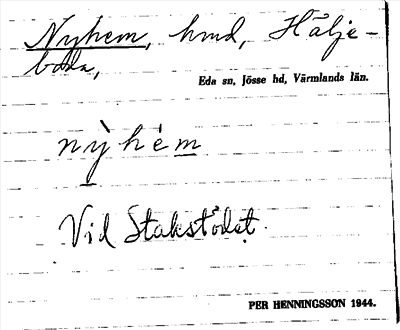 Nyhem, hmd, Hälje-
boda,
Eda sn, Jösse hd, Värmlands län.
nỳhém
Vid Stakstödet.
PER HENNINGSSON 1944.